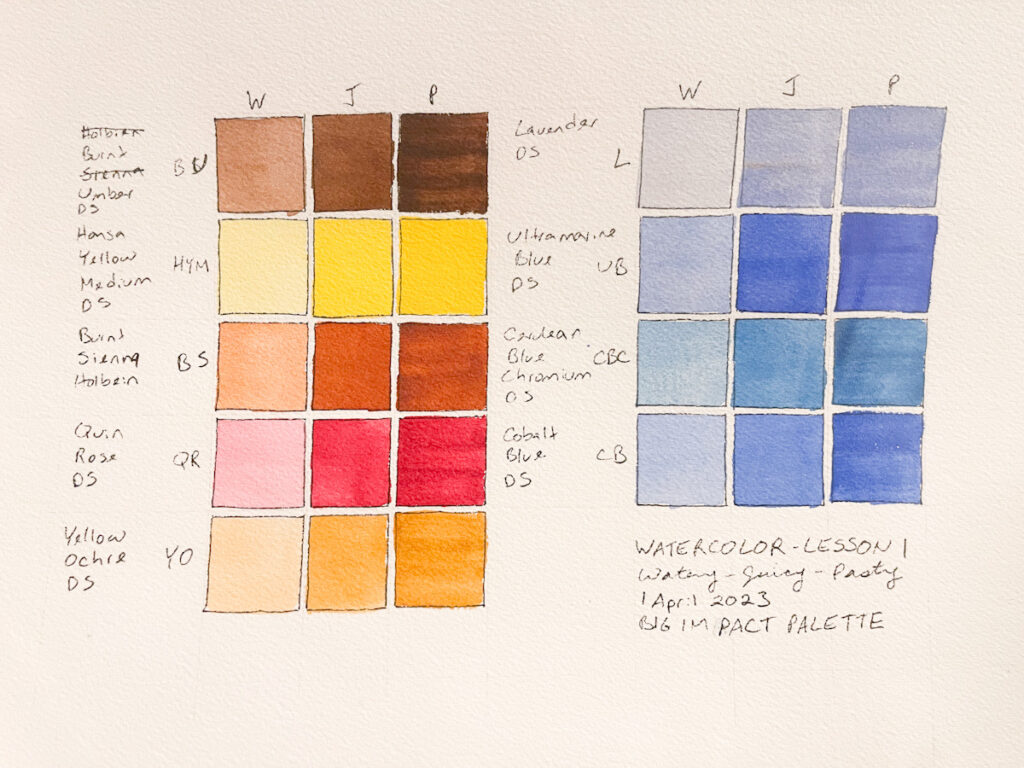 W J P
Holbien
Burnt
Sienna
Umber
DS
BU
Hansa
Yellow
Medium
DS
HYM
Burnt
Sienna
Holbein
BS
Quin
Rose
DS
QR
Yellow
Ochre
DS
YO
W J P
Lavender
DS
L
Ultramarine
Blue
DS
UB
Cerulean
Blue
Chromium
DS
CBC
Cobalt
Blue
DS
CB
WATERCOLOR - LESSON 1
Watery - Juicy - Pasty
1 April 2023
BIG IMPACT PALETTE